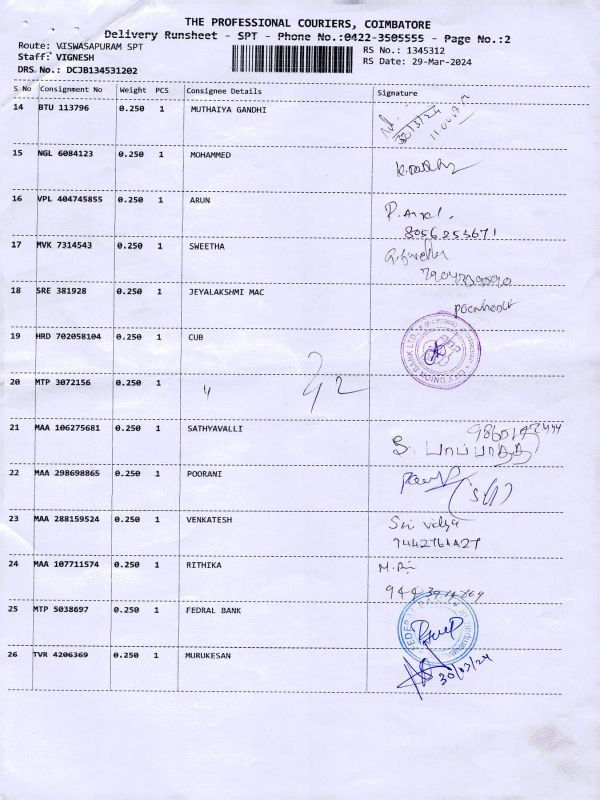 THE PROFESSIONAL COURIERS, COIMBATORE
Delivery Runsheet - SPT - Phone No.:0422-3505555 - Page No.:2
Route: VISWASAPURAM SPT
RS No.: 1345312
Staff: VIGNESH
RS Date: 29-Mar-2024
DRS No.: DCJB134531202
S No Consignment No Weight PCS Consignee Details Signature
14 BTU 113796 0.250 1 MUTHAIYA GANDHI
30/3/24
15 NGL 6084123 0.250 1 MOHAMMED
16 VPL 404745855 0.250 1 ARUN
8056253671
17 MVK 7314543 0.250 1 SWEETHA
18 SRE 381928 0.250 1 JEYALAKSHMI MAC
19 HRD 702058104 0.250 1 CUB
CITY UNION BANK LTD.
20 MTP 3072156 0.250 1
21 MAA 106275681 0.250 1 SATHYAVALLI
22 MAA 298698865 0.250 1 POORANI
23 MAA 288159524 0.250 1 VENKATESH
Sri vidya
24 MAA 107711574 0.250 1 RITHIKA
25 MTP 5038697 0.250 1 FEDRAL BANK
26 TVR 4206369 0.250 1 MURUKESAN
30/03/24